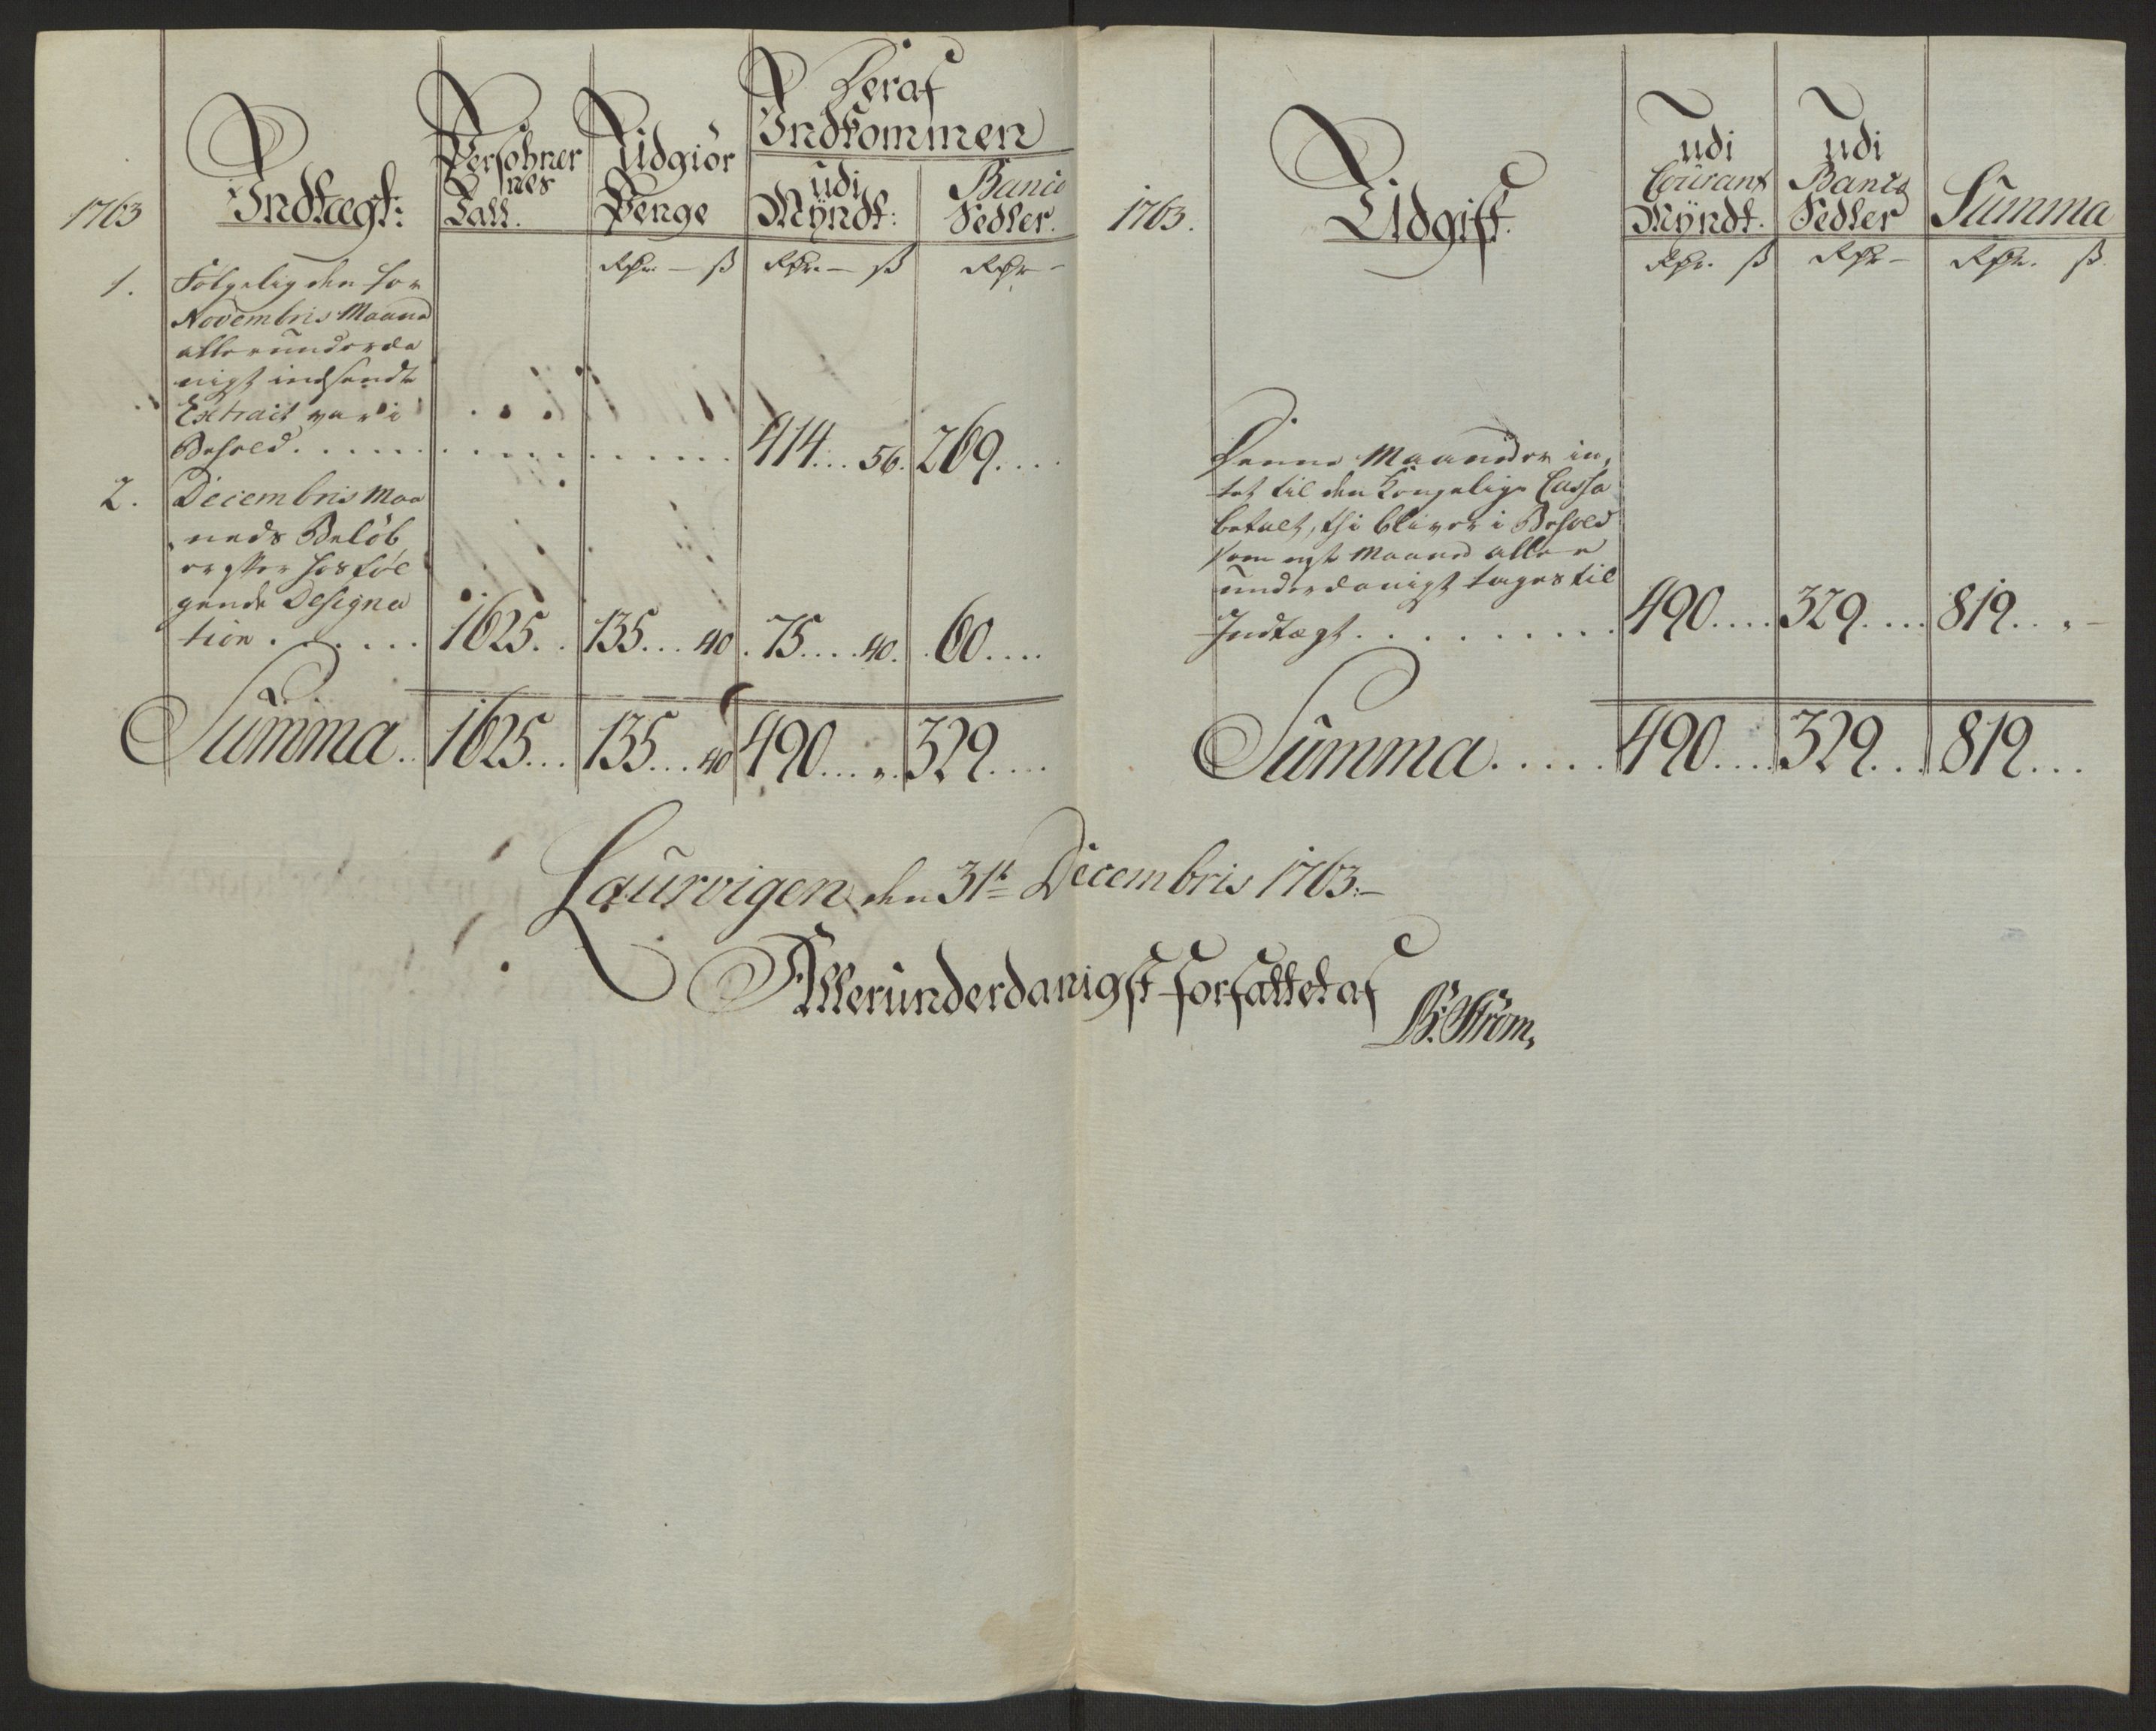 1763
Indtægt:
Persohner
nes
Tall.
Udgiør
Penge
Deraf
Indkommen
udi
Myndt:
Banco
Sedler.
Rdr. — ß
Rdr. — ß
Rdr —
1. Følgelig den for
Novembris Maaned
allerunderda
nigst indsendte
Extract var i
Behold. . . . . . 414 . . . 56. 269. . . .
2. Decembris Maa
neds Beløb
efter hosføl
gende Designa
tion . . . . . . 1625. . 135. . . 40 . 75. . . . 40. . 60. . . .
Summa . . 1625. . . 135. . . 40 490. . . „ . 329. . . .
1763.
Udgift.
udi
Courant
Myndt.
udi
Banco
Sedler
Summa
Rdr. ß
Rdr —
Rdr. ß.
Denne Maaneder in„
tet til den Kongelige Cassa
betalt, thi bliver i Behold
som nest Maaned aller
underdanigst tages til
Indtægt . . . . . . . . . 490. . . . 329. . . . 819. . . „ —
Summa. . . . . 490. . . . 329. . . 819. . .
Laurvigen den 31te Decembris 1763.—
Allerunderdanigst forfattet af
B. Strøm,